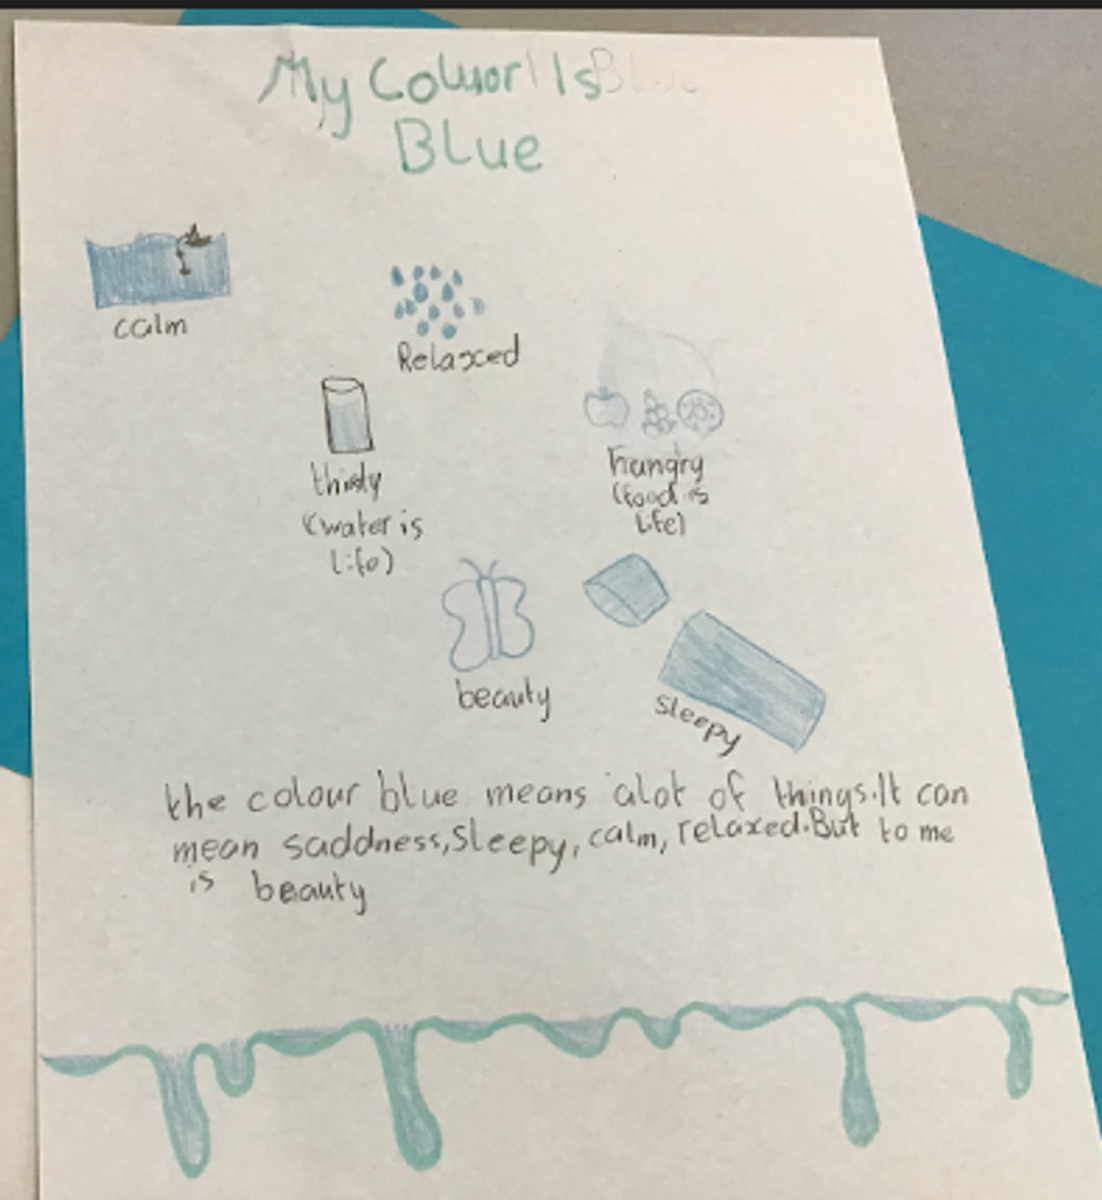 My Colour Is Blue
Blue
calm
Relaxed
thirsty
(water is
life)
hungry
(food is
life)
beauty
sleepy
the colour blue means alot of things. It can
mean saddness, sleepy, calm, relaxed. But to me
is beauty